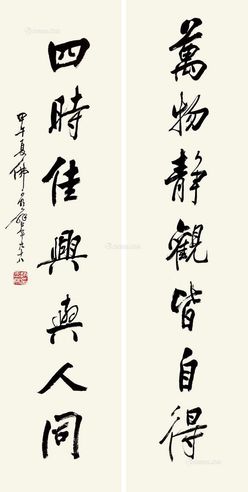 萬物静觀皆自得
四時佳興與人同
甲午夏佛